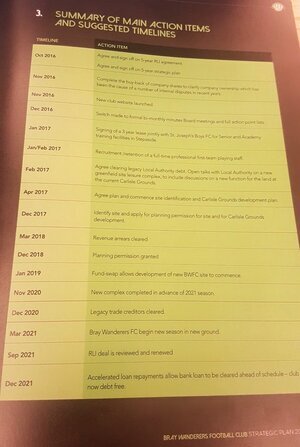 3. SUMMARY OF MAIN ACTION ITEMS
AND SUGGESTED TIMELINES
TIMELINE ACTION ITEM
Oct 2016 Agree and sign off on 5-year RLI agreement
Agree and sign off on 5-year strategic plan
Nov 2016 Complete the buy-back of company shares to clarify company ownership which has
been the cause of a number of internal disputes in recent years.
Nov 2016 New club website launched
Dec 2016 Switch made to formal bi-monthly minutes Board meetings and full action point lists
Jan 2017 Signing of a 3-year lease jointly with St. Joseph's Boys FC for Senior and Academy
training facilities in
Jan/Feb 2017 Recruitment/retention of a full-time professional first-team playing staff.
Feb 2017 Agree clearing legacy Local Authority debt. Open talks with Local Authority on a new
greenfield site leisure complex, to include discussions on a new function for the land at
the current Carlisle Grounds.
Apr 2017 Agree plan and commence site identification and Carlisle Grounds development plan
Dec 2017 Identify site and apply for planning permission for site and for Carlisle Grounds
development.
Mar 2018 Revenue arrears cleared
Dec 2018 Planning permission granted
Jan 2019 Fund-swap allows development of new BWFC site to commence.
Nov 2020 New complex completed in advance of 2021 season.
Dec 2020 Legacy trade creditors cleared.
Mar 2021 Bray Wanderers FC begin new season in new ground.
Sep 2021 RLI deal is reviewed and renewed
Dec 2021 Accelerated loan repayments allow bank loan to be cleared ahead of schedule – club
now debt free.
BRAY WANDERERS FOOTBALL CLUB STRATEGIC PLAN